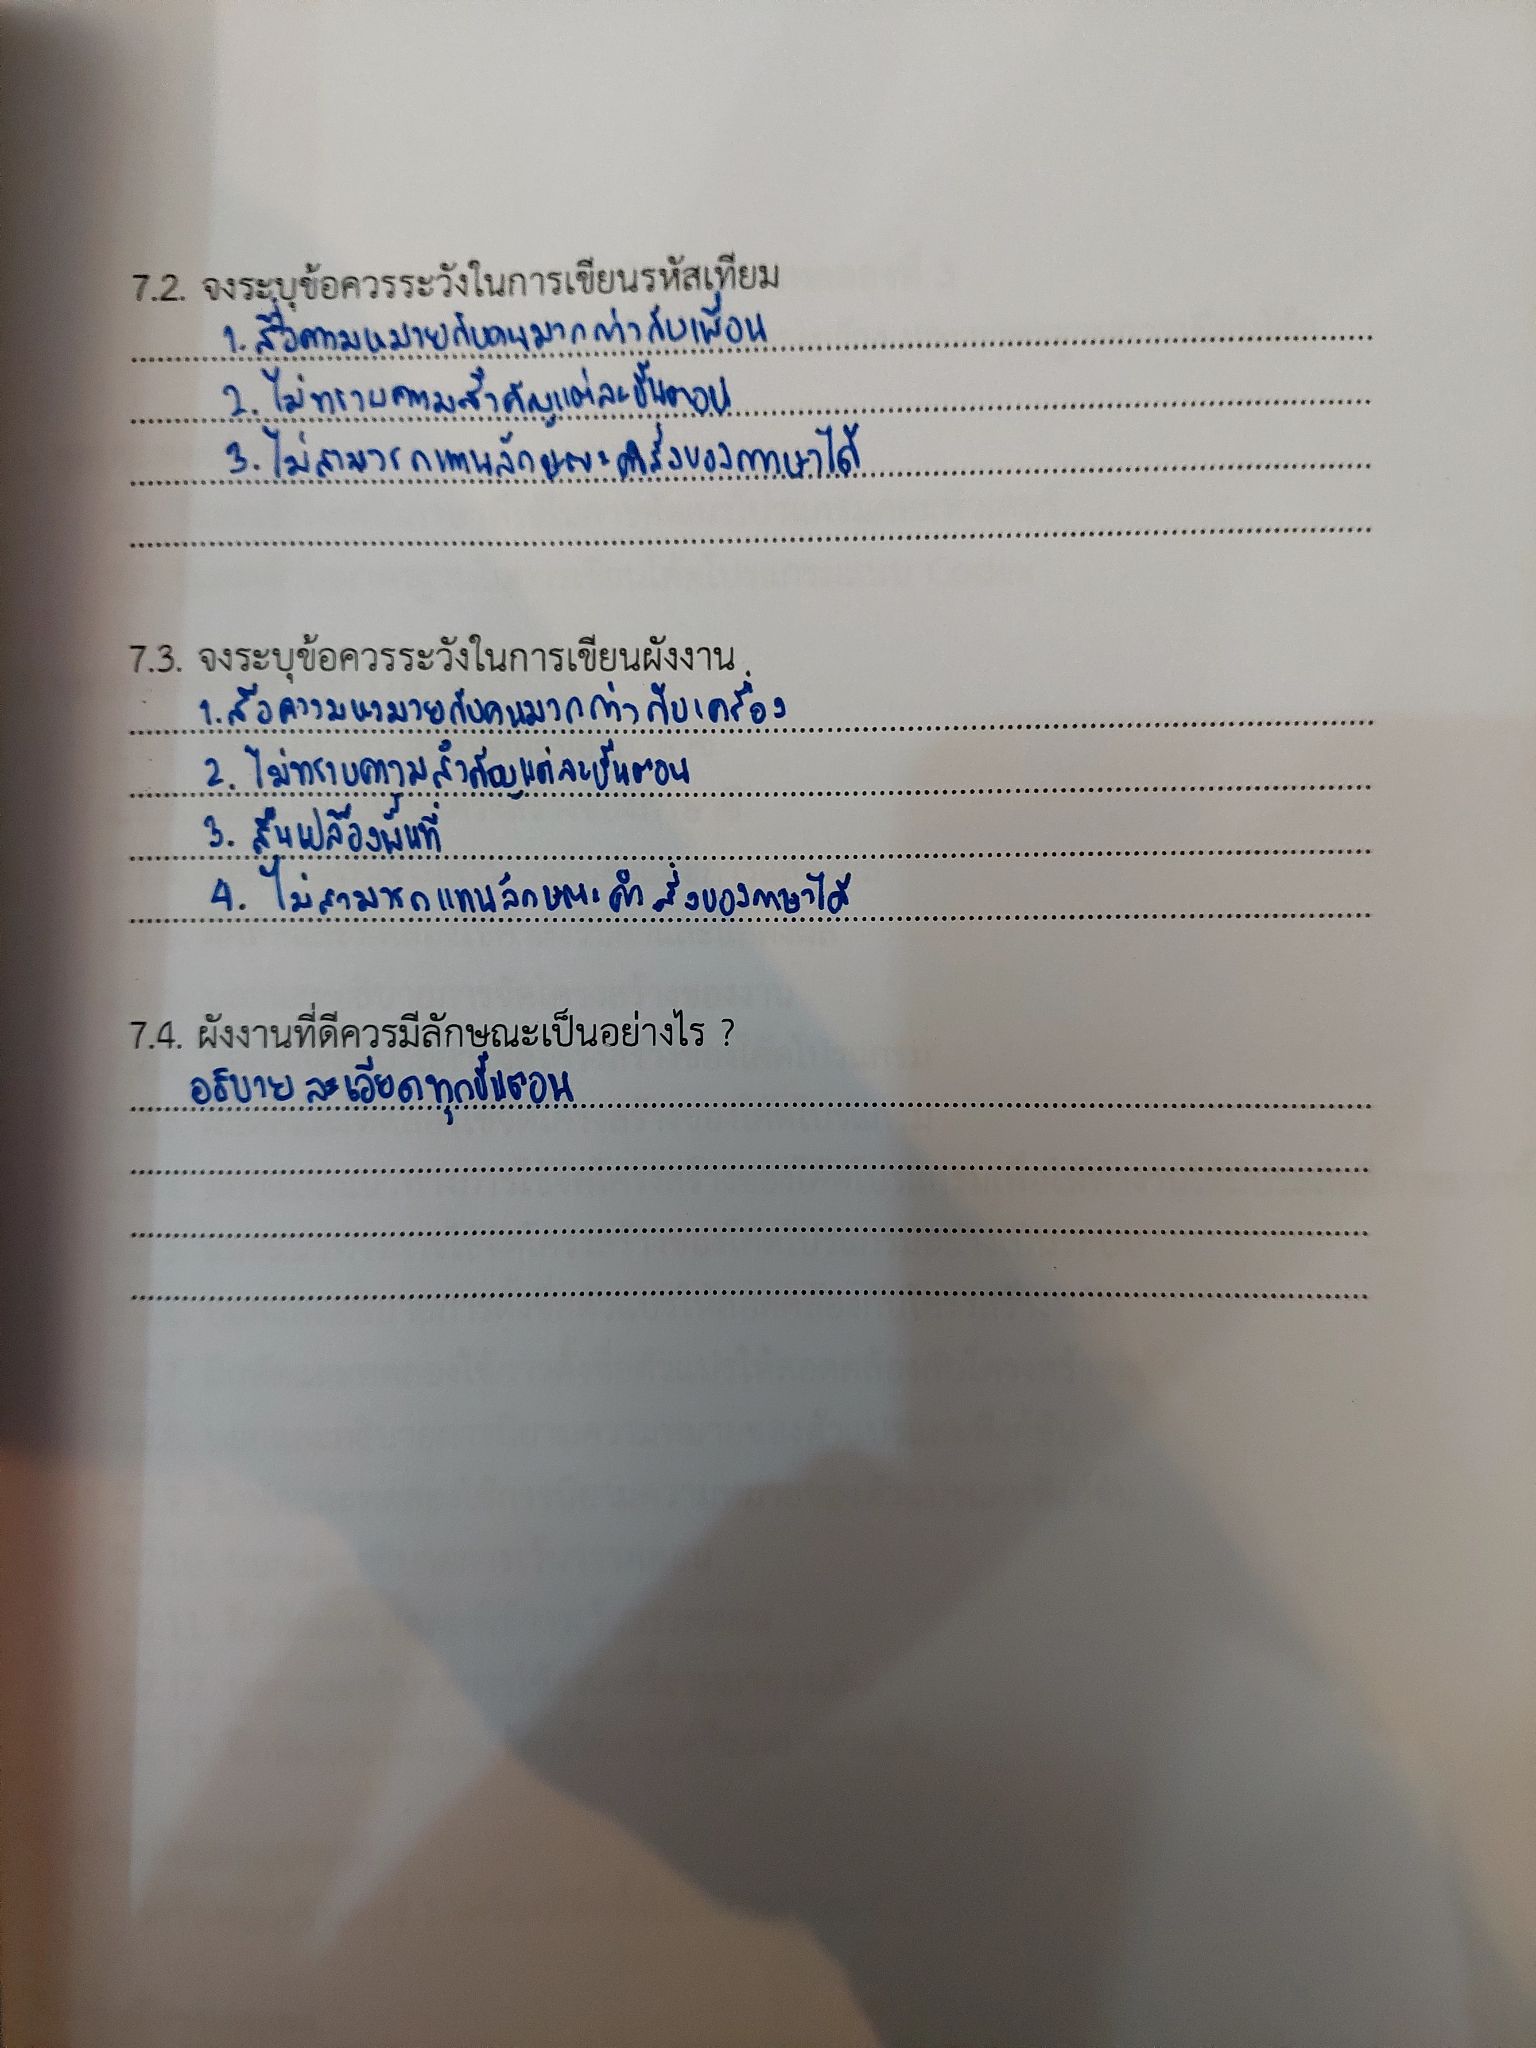 7.2. จงระบุข้อควรระวังในการเขียนรหัสเทียม
1. สื่อความหมายกับคนมากกว่ากับเพื่อน
2. ไม่ทราบความสำคัญแต่ละขั้นตอน
3. ไม่สามารถแทนลักษณะคำสั่งของภาษาได้
7.3. จงระบุข้อควรระวังในการเขียนผังงาน
1. สื่อความหมายกับคนมากกว่ากับเครื่อง
2. ไม่ทราบความสำคัญแต่ละขั้นตอน
3. สิ้นเปลืองพื้นที่
4. ไม่สามารถแทนลักษณะคำสั่งของภาษาได้
7.4. ผังงานที่ดีควรมีลักษณะเป็นอย่างไร ?
อธิบายละเอียดทุกขั้นตอน